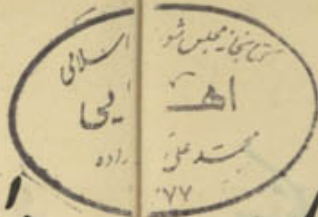 کتابخانه مجلس شو اسلامی
اهـ ایی
محمد علی راده
۷۷